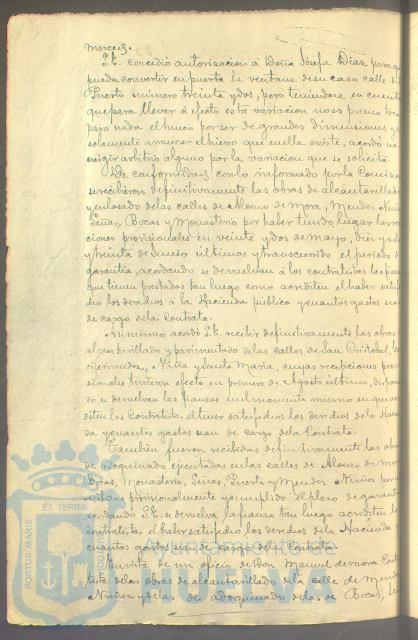 merced.
S.E. concedió autorisacion á Doña Josefa Diaz para q
pueda convertir en puerta la ventana de su casa calle d
Puerto número treinta y dos, pero teniendose en cuenta
que para llevar á efecto esta variacion no es preciso toca
para nada el hueco por ser de grandes dimensiones y
solamente arrancar el hierro que en ella existe, acordó no
exigir arbitrio alguno por la variacion que se solicita.
De conformidad con lo informado por la Comisio
se recibieron definitivamente las obras de alcantarillado
y enlosado de las calles de Alonso de Mora, Mendez Nuñe
Señas, Bocas y Monasterio por haber tenido lugar las
ciones provisionales en veinte y dos de mayo, diez y
y treinta de Junio últimos y transcurrido el periodo d
garantia, acordando se devuelvan á los contratistas las fian
que tienen prestadas tan luego como acrediten el haber satis
do los derechos á la Hacienda pública y cuantos gastos sean
de cargo de la Contrata.
Asimismo acordó S.E. recibir definitivamente las obras
alcantarillado y pavimentado de las calles de San Cristobal,
Hernandez, Niña y Santa Maria, cuyas recepciones provi
sionales tuvieron efecto en primero de Agosto último,
se devuelvan las fianzas en el momento mismo en que acre
diten los Contratistas el tener satisfechos los derechos de la Hacien
da y cuantos gastos sean de cargo de la Contrata.
Tambien fueron recibidas definitivamente las obras
de adoquinado ejecutadas en las calles de Alonso de Mor
Bocas, Monasterio, Señas, Puerto y Mendez Nuñez por
recibidas provisionalmente y cumplido el plazo de garant
acordando S.E. se devuelva la fianza tan luego acredite
contratista el haber satisfecho los derechos de la Hacienda
cuantos gastos sean de cargo de la Contrata.
En vista de un oficio de Don Manuel de mora Contra
tista de las obras de alcantarillado de la calle de Mendez
Nuñez y de las de adoquinado de las de Bocas,
PORTUS MARIS
ET TERRAE